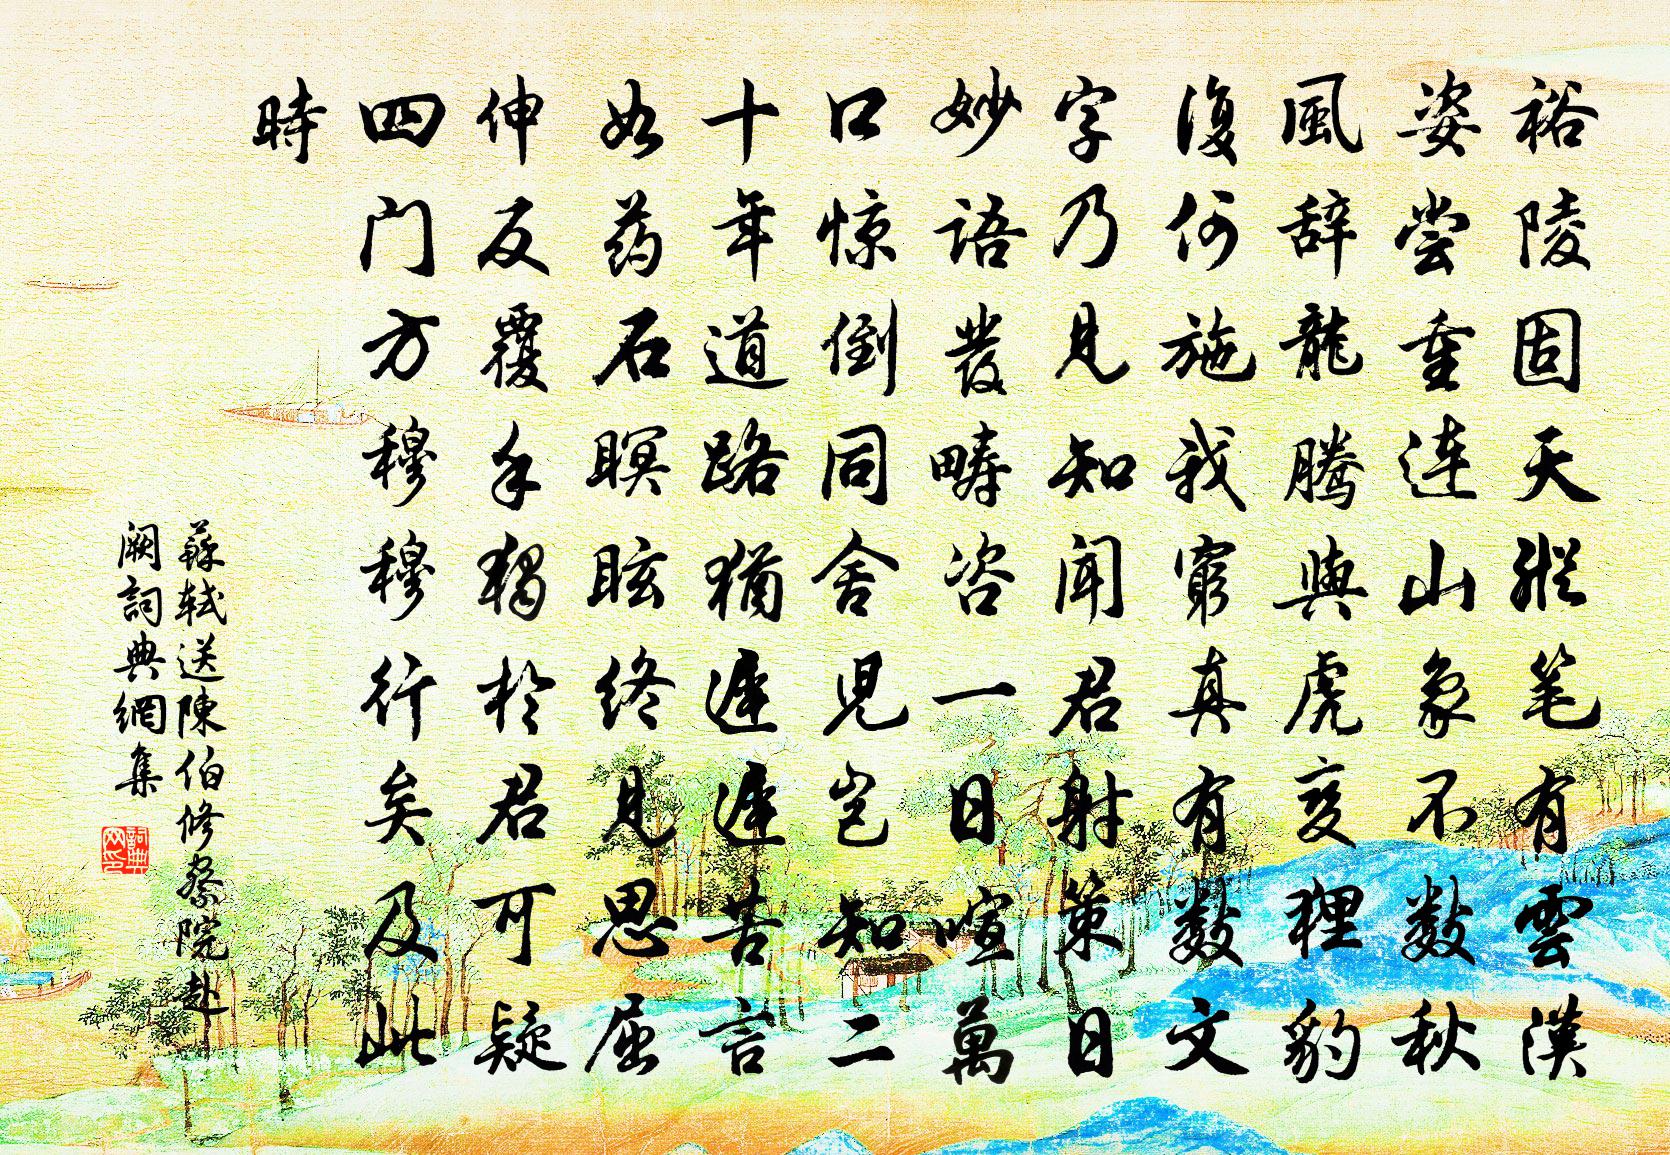 裕陵固天縱笔有雲漢
姿尝重连山象不數秋
風辞龍腾與虎变狸豹
復何施我窮真有數文
字乃見知闻君射策日
妙語發畴咨一日喧萬
口惊倒同舍児岂知二
十年道路犹遲遲苦言
如药石瞑眩终見思屈
伸反覆手独於君可疑
四门方穆穆行矣及此
時
蘇軾送陳伯修察院赴
阙詞典網集
詞典网印